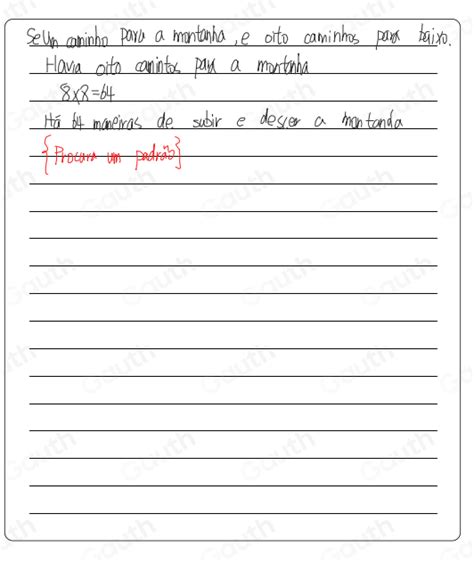 Se Um caminho para a montanha, e oito caminhos para baixo.
Havia oito camintos para a montanha
8x8=64
Há 64 maneiras de subir e descer a montanda
{Procura um padrão}